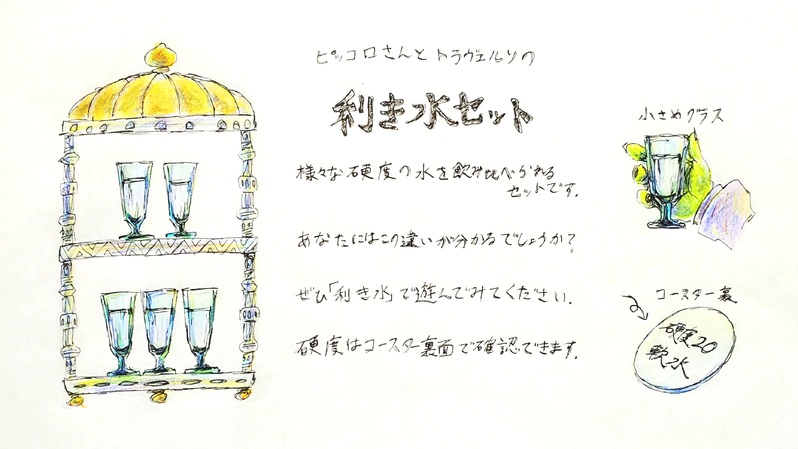 ピッコロさんとトラヴェルソの
利き水セット
様々な硬度の水を飲み比べられる
セットです。
あなたにはこの違いが分かるでしょうか？
ぜひ「利き水」で遊んでみてください。
硬度はコースター裏面で確認できます。
小さめグラス
コースター裏
硬度20
軟水